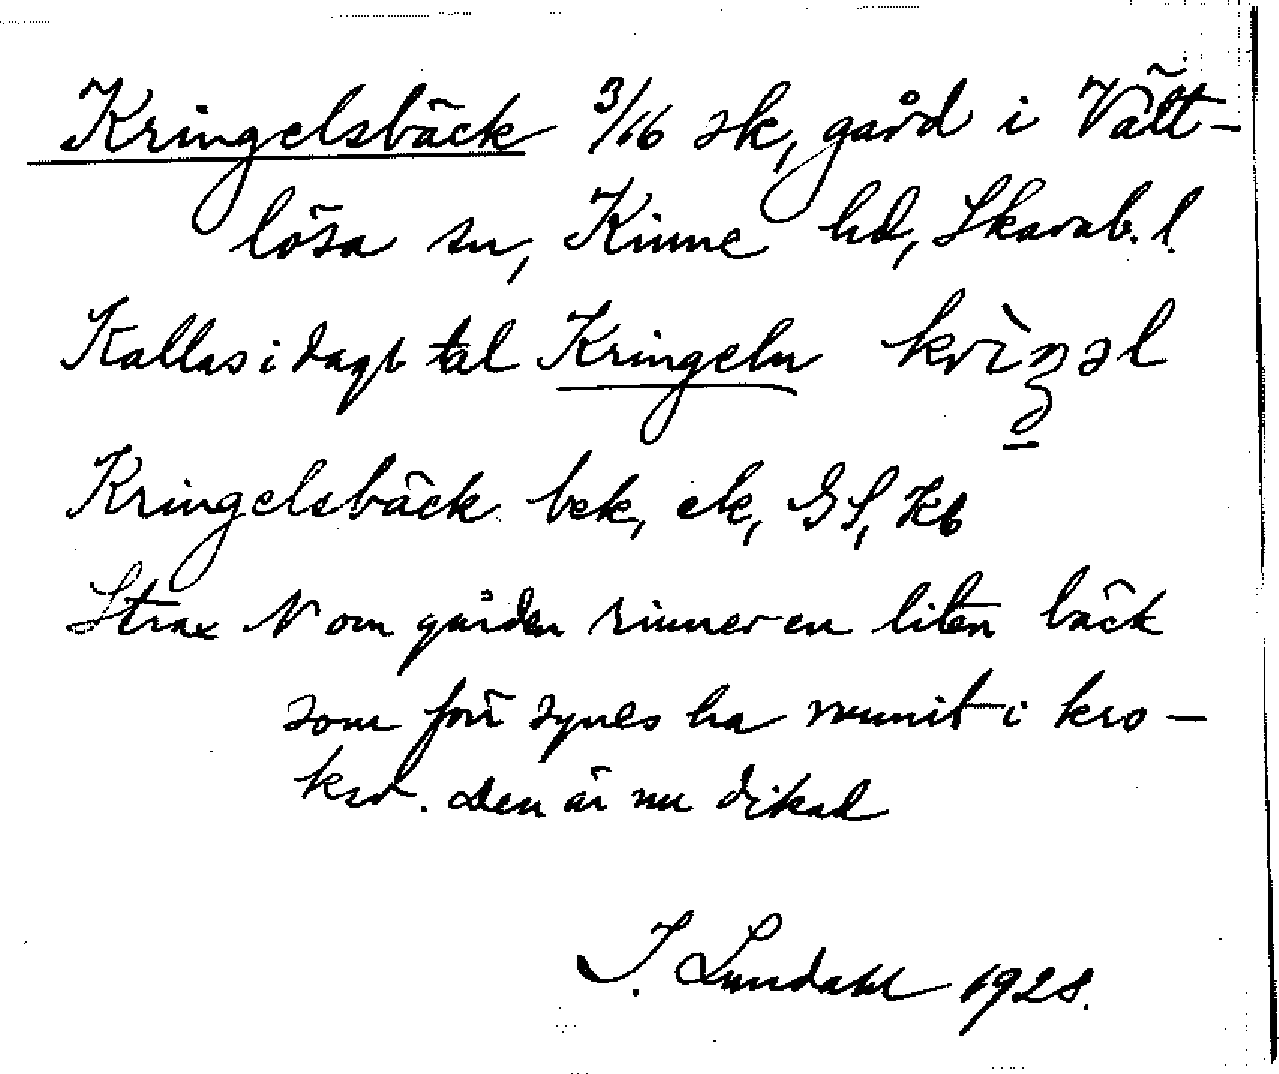 Kringelsbäck 3/16 sk, gård i Vätt-
lösa sn, Kinne hd, Skarab. l.
Kallas i dagl tal Kringeln
Kringelsbäck bek, ek, GS, Kb
Strax N om gården rinner en liten bäck
som förr synes ha runnit i kro-
kar. Den är nu dikad
I. Lundahl 1928.